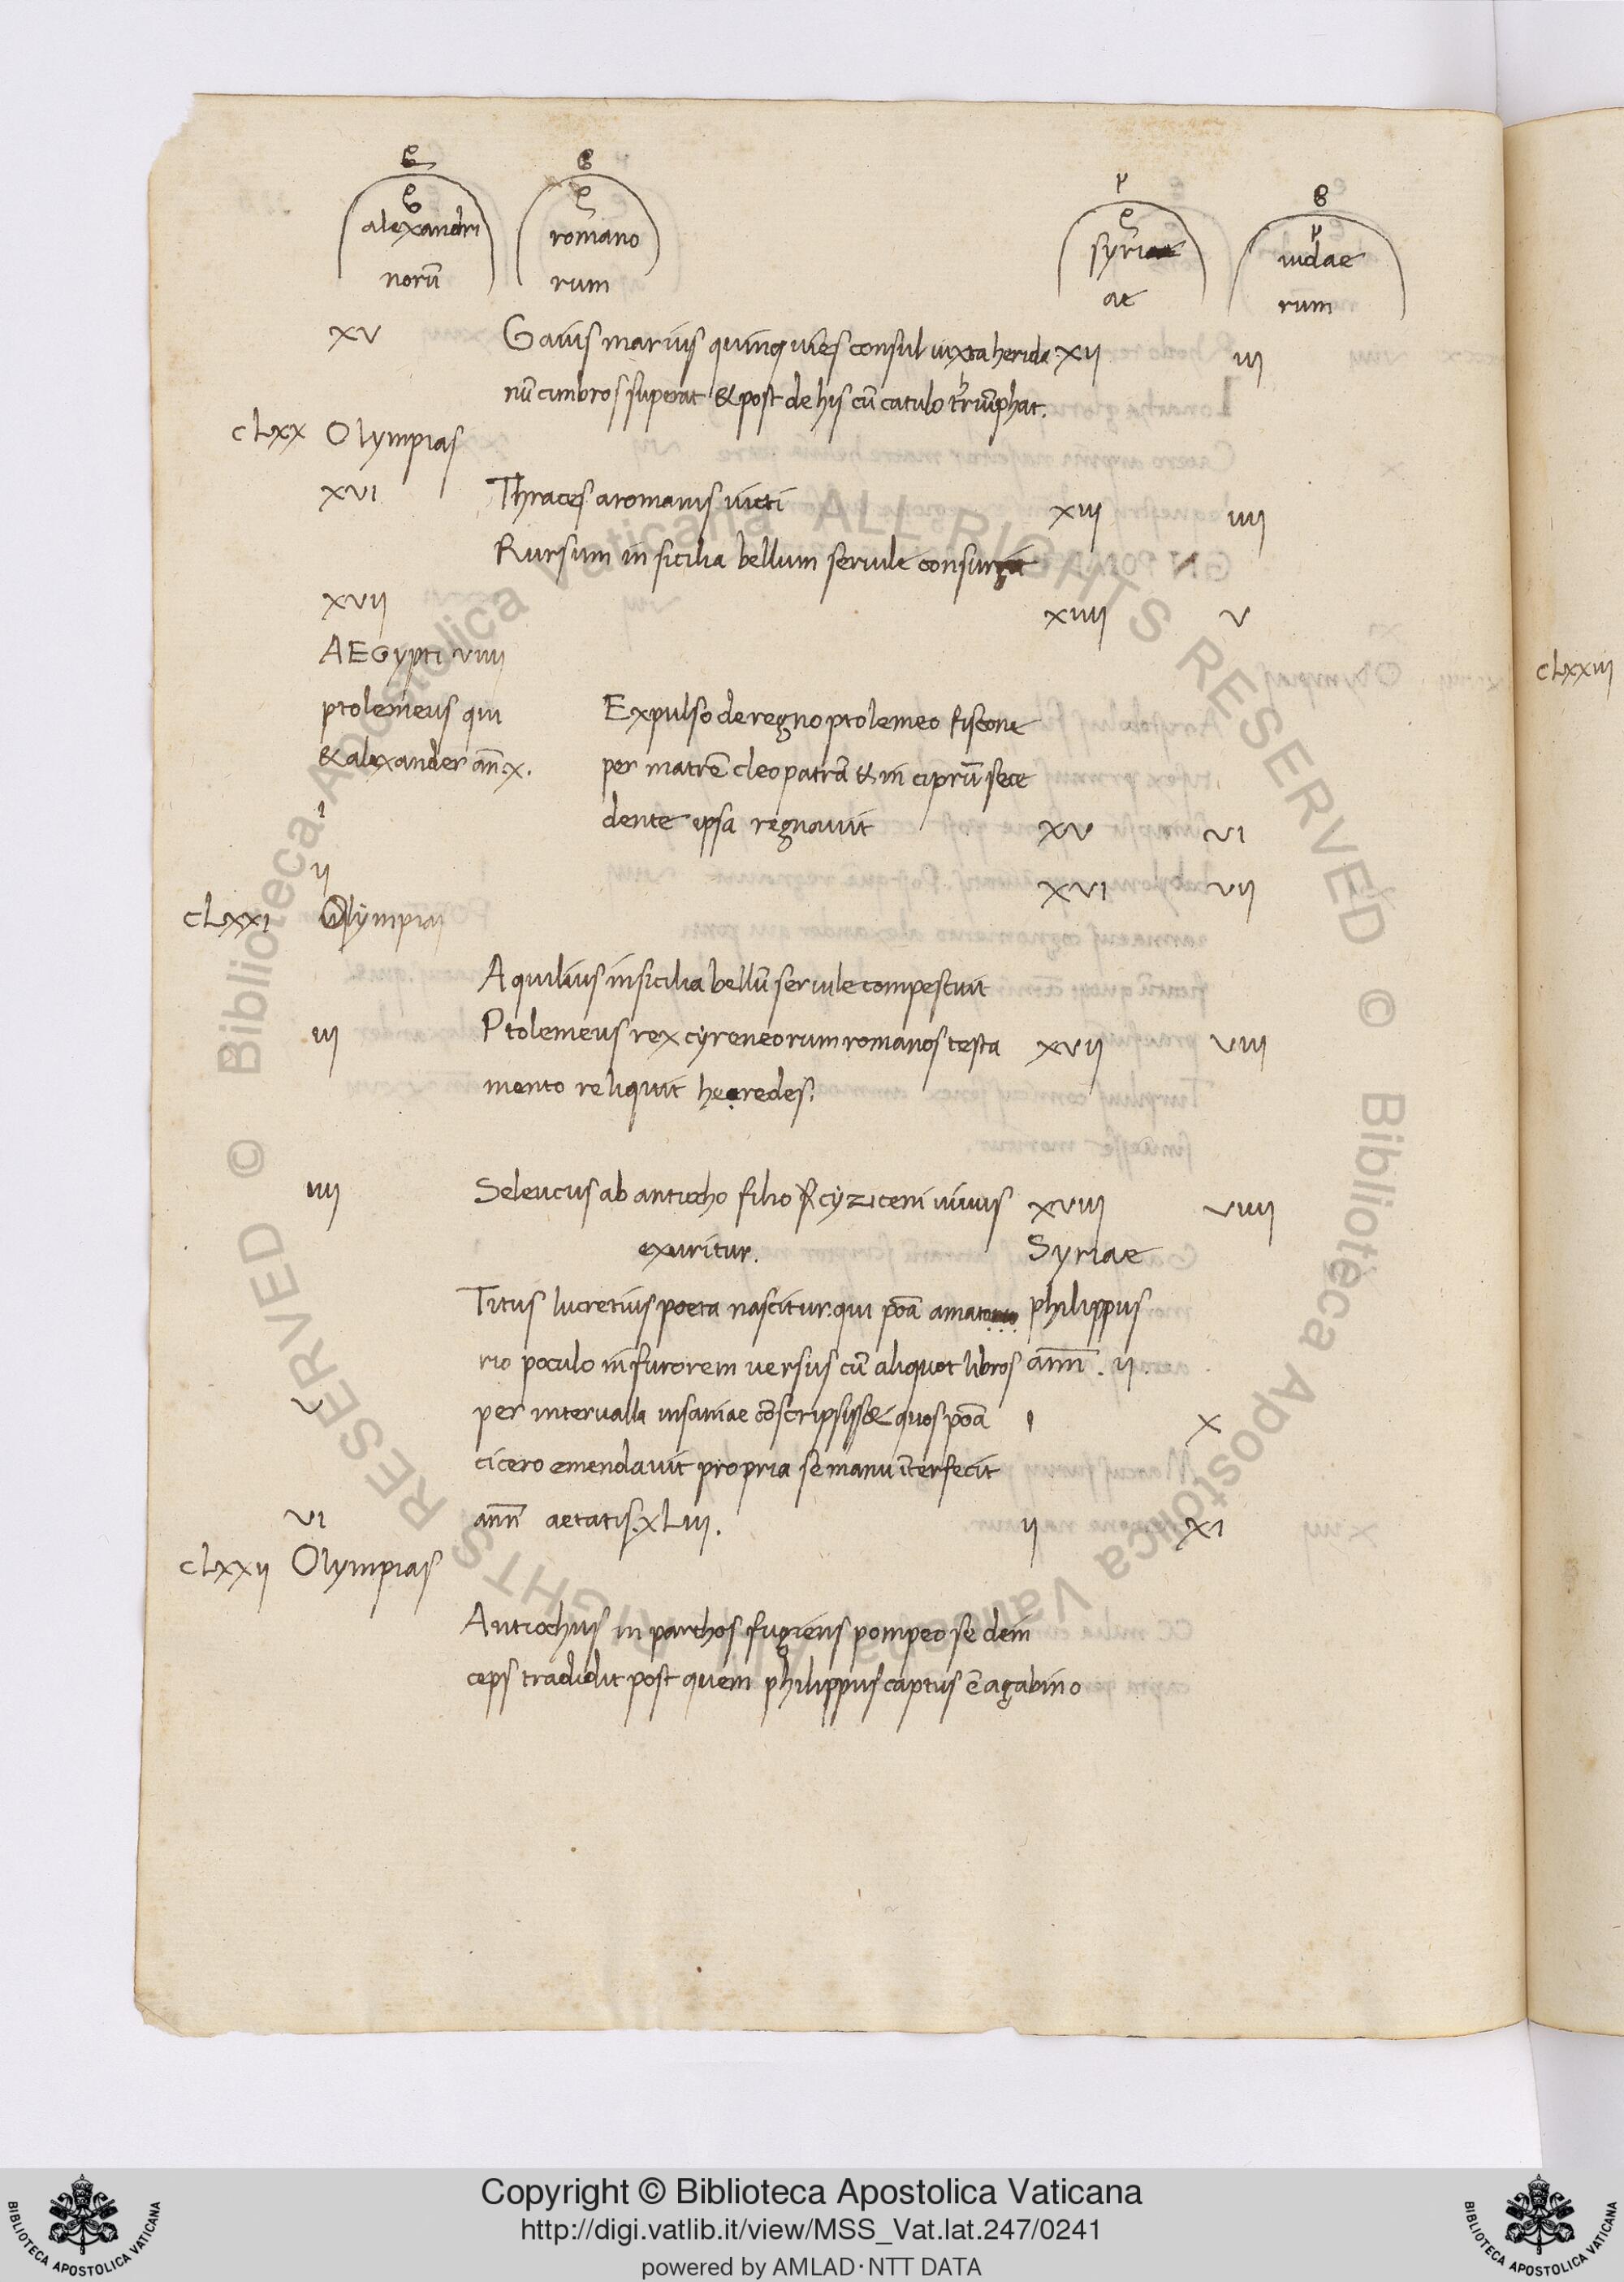 alexandri
norū
romano
rum
syriae
ae
iudae
rum
xv Gaius marius quinquies consul iuxta herida xii iii
nū cimbros superat & post de his cū catulo triūphat.
cLxx Olympias
xvi Thraces a romanis uicti xiii iiii
Rursum in sicilia bellum seruile consurgit
xvii xiiii v
AEGypti viiii
ptolemeus qui Expulso de regno ptolemeo fiscone
& alexander añ. x. per matrē cleopatrā & in ciprū sece
i dente ipsa regnauit xv vi
ii xvi vii
cLxxi Olympias
Aquilius in sicilia bellū seruile compescuit
iii Ptolemeus rex cyreneorum romanos testa xvii viii
mento reliquit heredes.
iiii Seleucus ab antiocho filio cyziceni uiuus xviii viiii
exuritur. Syriae
Titus lucretius poeta nascitur. qui poā amato philippus
rio poculo in furorem uersus cū aliquot libros ann̄. ii.
v per interualla insaniae cōscripsiss& quos poā i x
cicero emendauit propria se manu īterfecit
vi ann̄ aetatis. xLiii. ii xi
cLxxii Olympias
Antiochus in parthos fugiens pompeo se dein
ceps tradidit post quem philippus captus ē a gabino
cLxxiii
Copyright © Biblioteca Apostolica Vaticana
http://digi.vatlib.it/view/MSS_Vat.lat.247/0241
powered by AMLAD·NTT DATA
BIBLIOTECA APOSTOLICA VATICANA
BIBLIOTECA APOSTOLICA VATICANA
© Biblioteca Apostolica Vaticana ALL RIGHTS RESERVED
© Biblioteca Apostolica Vaticana ALL RIGHTS RESERVED